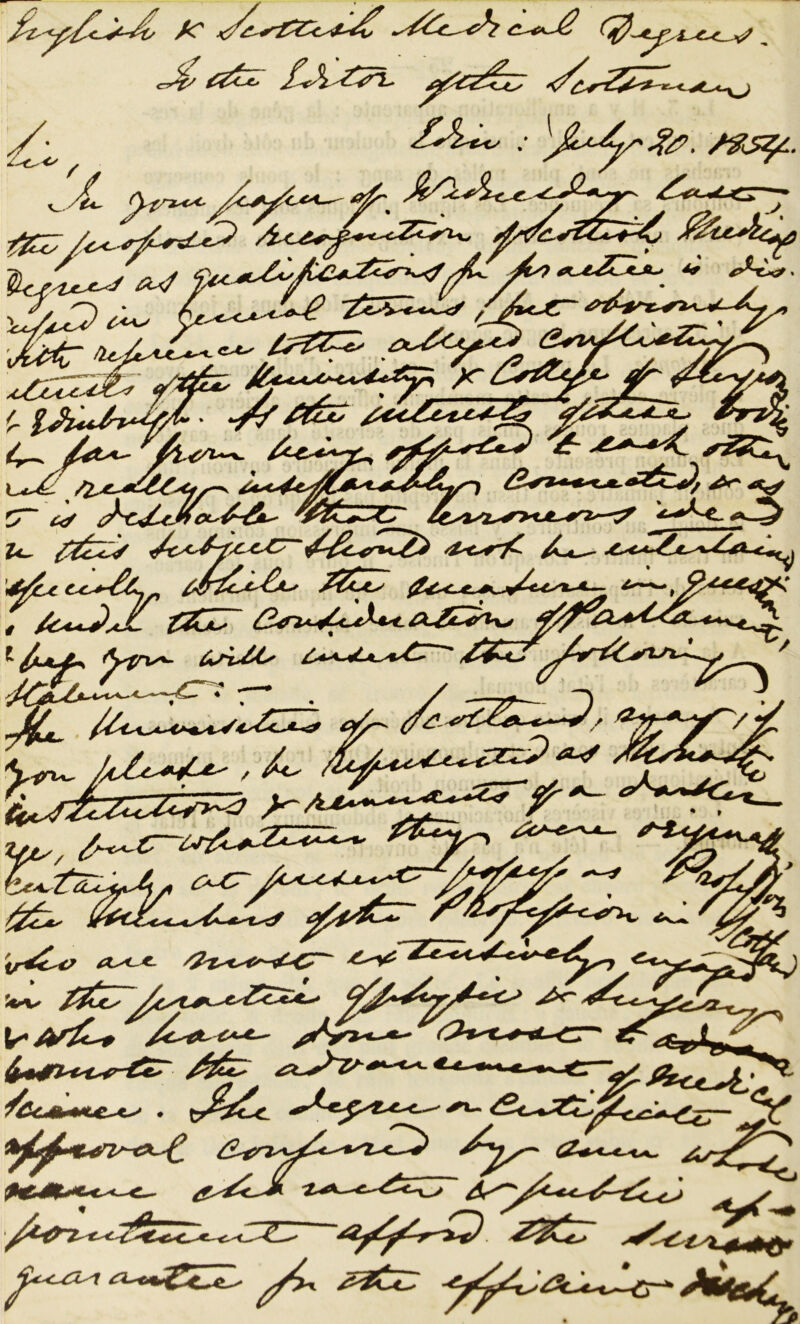 English & Scottish Medical Degrees.
To the Editor of the Scotsman
Edin: July 20. 1854.
Sir,
In your paper of Wednesday last,
the proposed recognition of Scottish Medical
Degrees as qualifications for practice is dis-
cussed in general terms, but obviously
with reference to the alleged conflicting
interests of the University & College of Surgeons
of Edinburgh. As the interests of these bodies
so far from being opposed to each other
are really inseparably connected, & as
it is desirable that erroneous ideas
on this subject should not be entertained
especially while the measure in question
is under the consideration of Parliament,
I beg you will insert the following
Statement: —
The Universities of Scotland, may, if
you please, be represented as Monastic
institutions & remnants of a darker
age, but whatever they were originally,
certainly at present possess as Professors
the members of the Profession in Scotland
who are most extensively engaged
in the practice of physic & surgery
& who have done most to advance
promote the advancement of Medical
science. The degree or certificate of
approval conferred by men whose
name character & public ap-
pointment afford the surest
guarantee for the efficient discharge